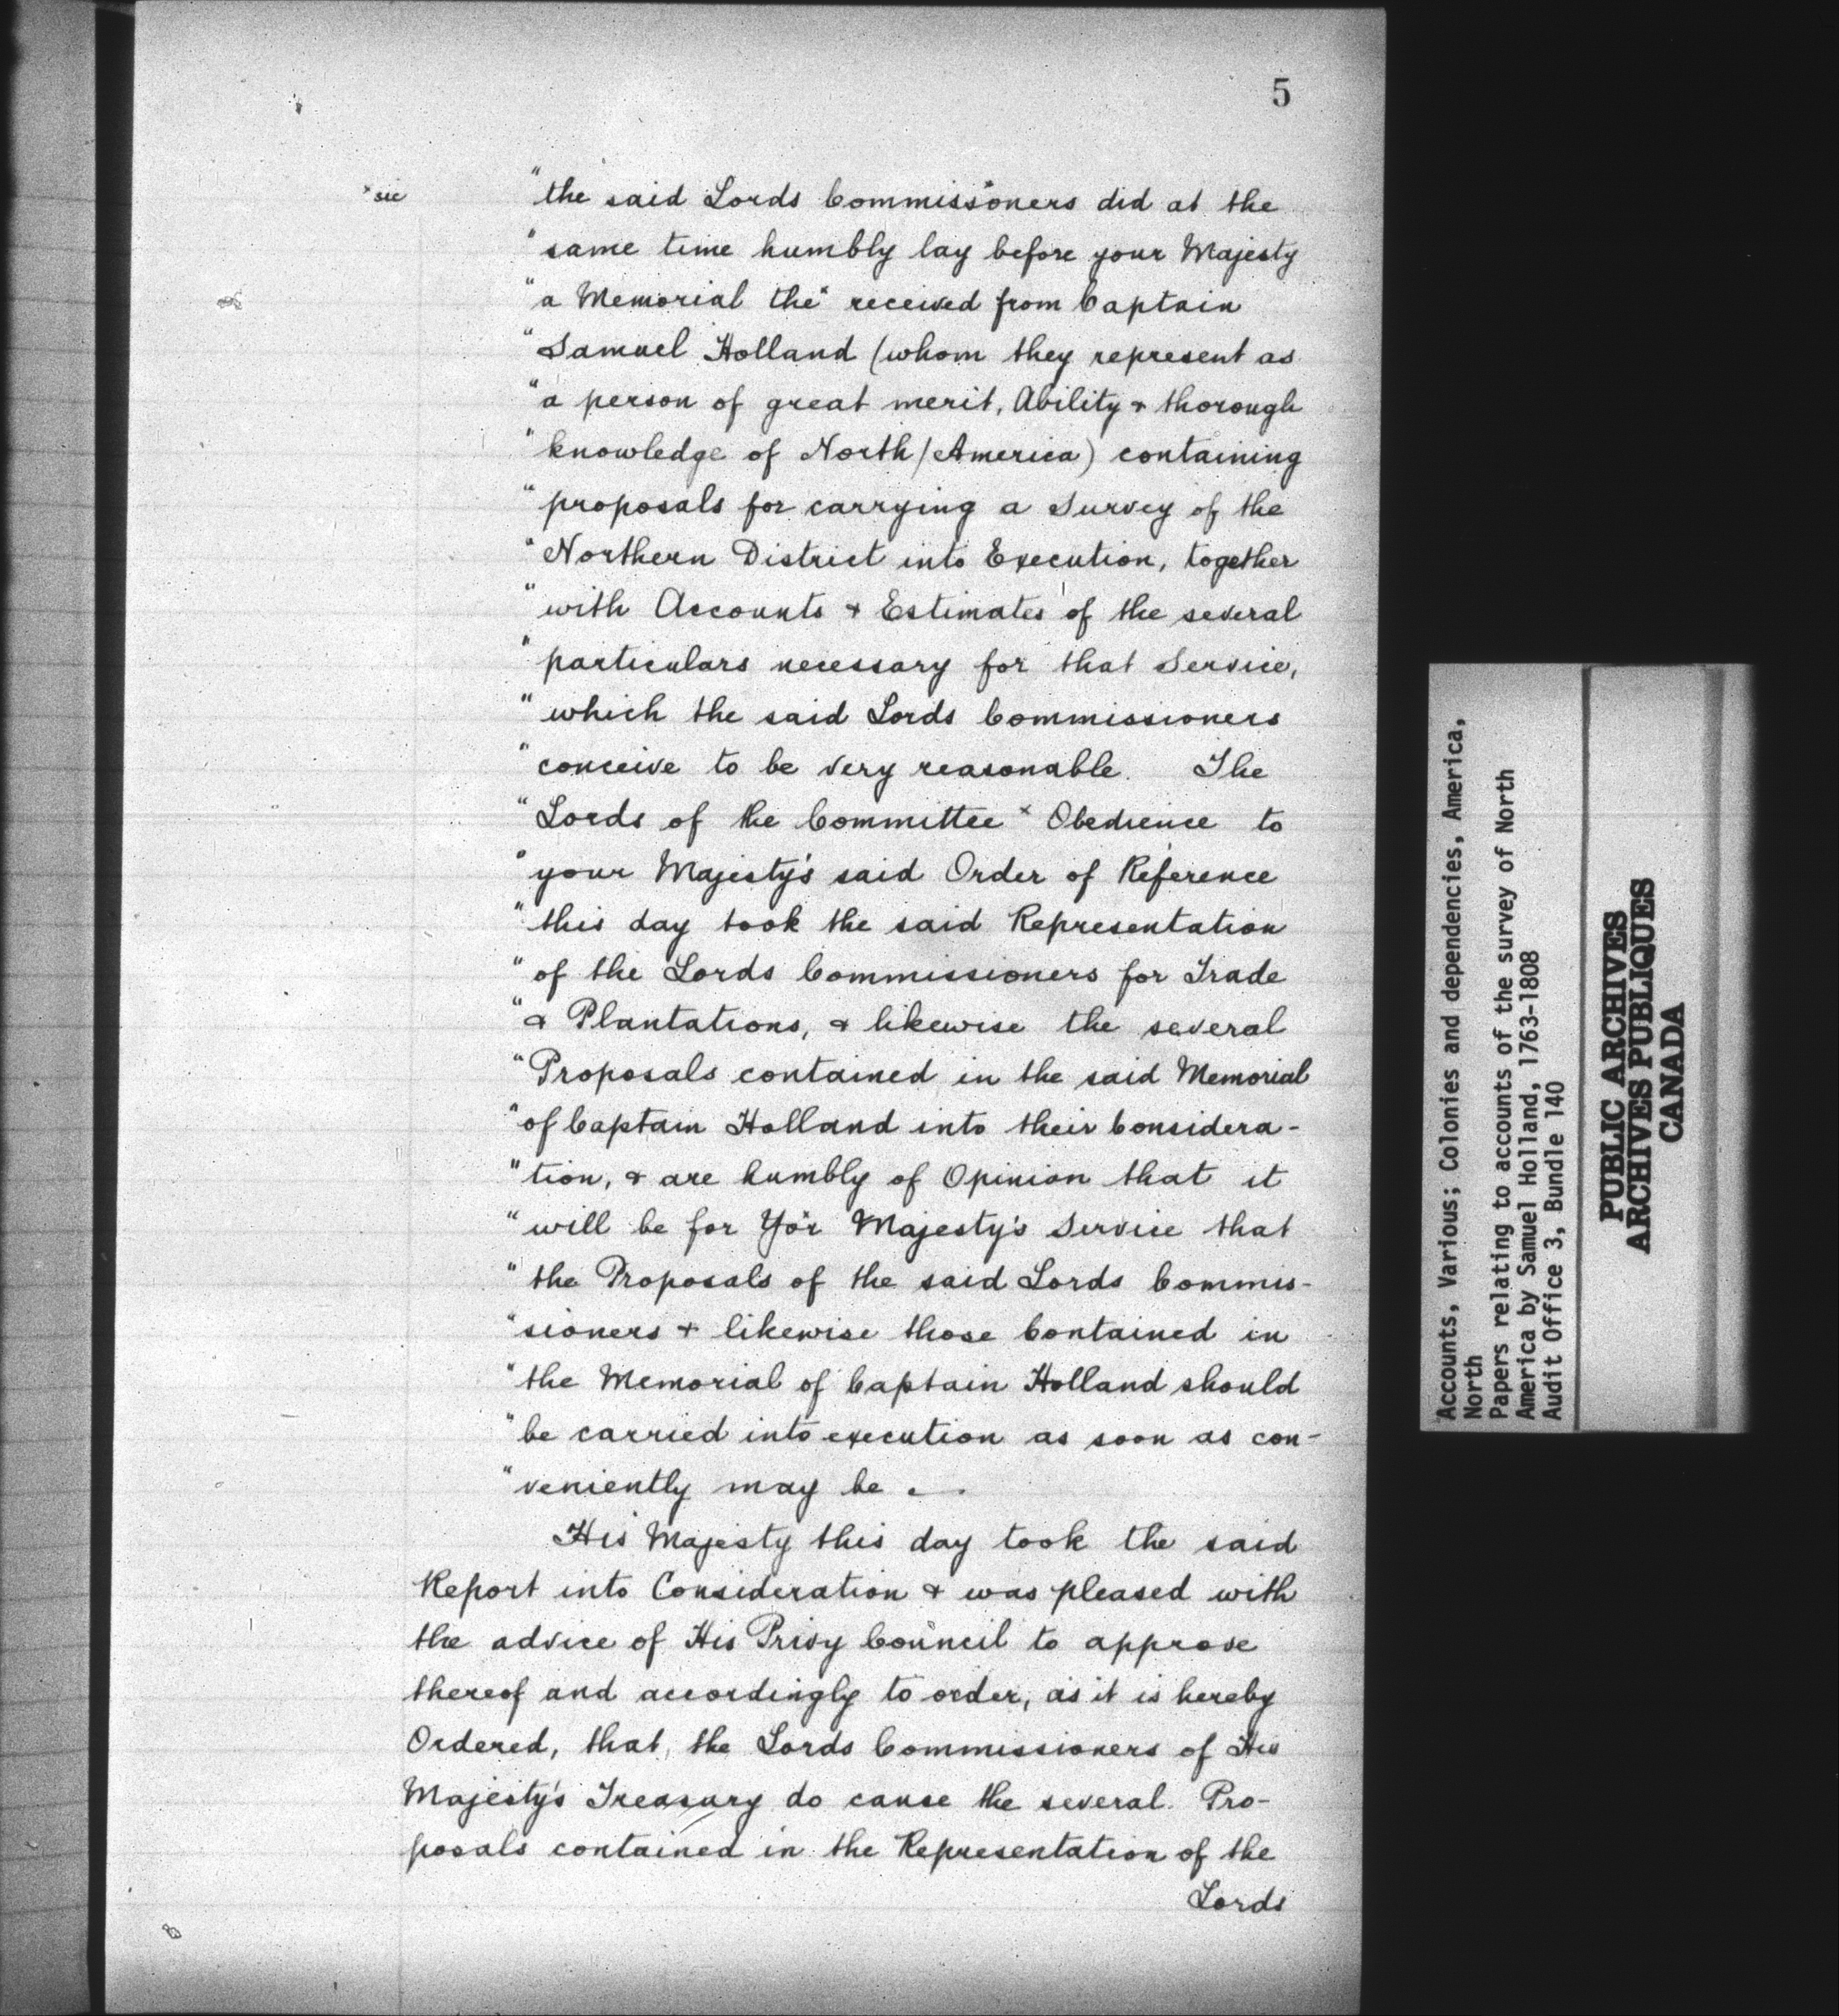 5
ˣ sic
"the said Lords Commissˣoners did at the
"same time humbly lay before your Majesty
"a Memorial theˣ received from Captain
"Samuel Holland (whom they represent as
"a person of great merit, Ability & thorough
"knowledge of North/America) containing
"proposals for carrying a Survey of the
"Northern District into Execution, together
"with Accounts & Estimates of the several
"particulars necessary for that Service,
"which the said Lords Commissioners
"conceive to be very reasonable. The
"Lords of the Committee ˣ Obedience to
"your Majesty's said Order of Reference
"this day took the said Representation
"of the Lords Commissioners for Trade
"& Plantations, & likewise the several
"Proposals contained in the said Memorial
"of Captain Holland into their Considera-
"tion, & are humbly of Opinion that it
"will be for Yo'r Majesty's Service that
"the Proposals of the said Lords Commis-
"sioners & likewise those Contained in
"the Memorial of Captain Holland should
"be carried into execution as soon as con-
"veniently may be .—.
His Majesty this day took the said
Report into Consideration & was pleased with
the advice of His Privy Council to approve
thereof and accordingly to order, as it is hereby
Ordered, that, the Lords Commissioners of His
Majesty's Treasury do cause the several Pro-
posals contained in the Representation of the
Lords
Accounts, Various; Colonies and dependencies, America,
North
Papers relating to accounts of the survey of North
America by Samuel Holland, 1763-1808
Audit Office 3, Bundle 140
PUBLIC ARCHIVES
ARCHIVES PUBLIQUES
CANADA